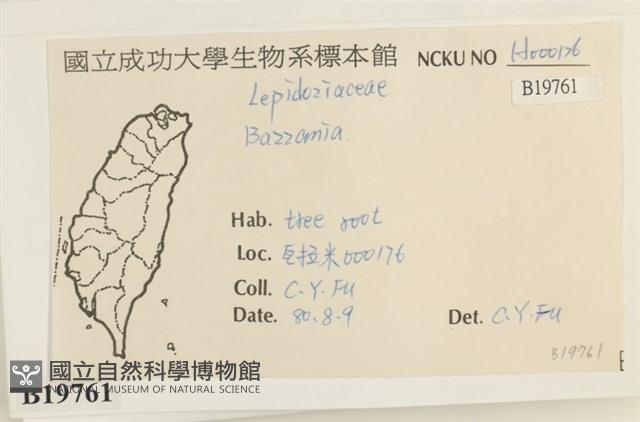 國立成功大學生物系標本館 NCKU NO H000176
B19761
Lepidoziaceae
Bazzania
Hab. tree root
Loc. 瓦拉米000176
Coll. C.Y.Fu
Date. 80.8.9 Det. C.Y.Fu
B19761
國立自然科學博物館
NATIONAL MUSEUM OF NATURAL SCIENCE
B19761